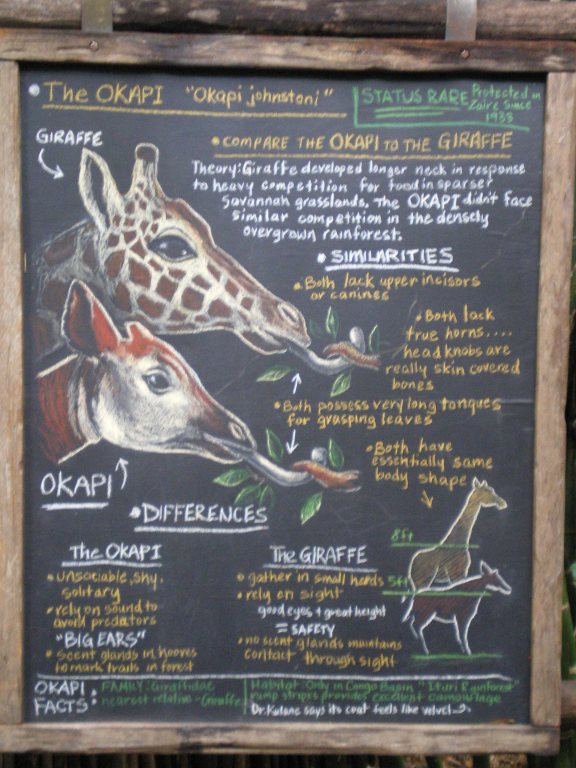 • The OKAPI "Okapi johnstoni"
STATUS RARE Protected in
Zaire Since
1933
GIRAFFE
• COMPARE THE OKAPI TO THE GIRAFFE
Theory: Giraffe developed longer neck in response
to heavy competition for food in sparser
Savannah grasslands. The OKAPI didn't face
similar competition in the densely
overgrown rainforest.
• SIMILARITIES
• Both lack upper incisors
or canines
• Both lack
true horns....
head knobs are
really skin covered
bones
• Both possess very long tongues
for grasping leaves
• Both have
essentially same
body shape
OKAPI
8ft
5ft
• DIFFERENCES
The OKAPI
• unsociable, shy,
solitary
• rely on sound to
avoid predators
"BIG EARS"
• scent glands in hooves
to mark trails in forest
The GIRAFFE
• gather in small herds
• rely on sight
good eyes + great height
= SAFETY
• no scent glands maintains
contact through sight
OKAPI
FACTS:
FAMILY: Giraffidae
nearest relative - Giraffe
Habitat: Only in Congo Basin "Ituri Rainforest"
rump stripes provides excellent camouflage
Dr. Kutane says its coat feels like velvet